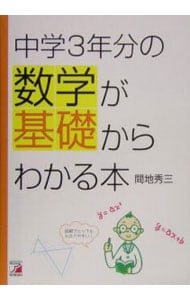 中学3年分の
数学が
基礎から
わかる本
間地秀三
y=ax²
y=ax+b